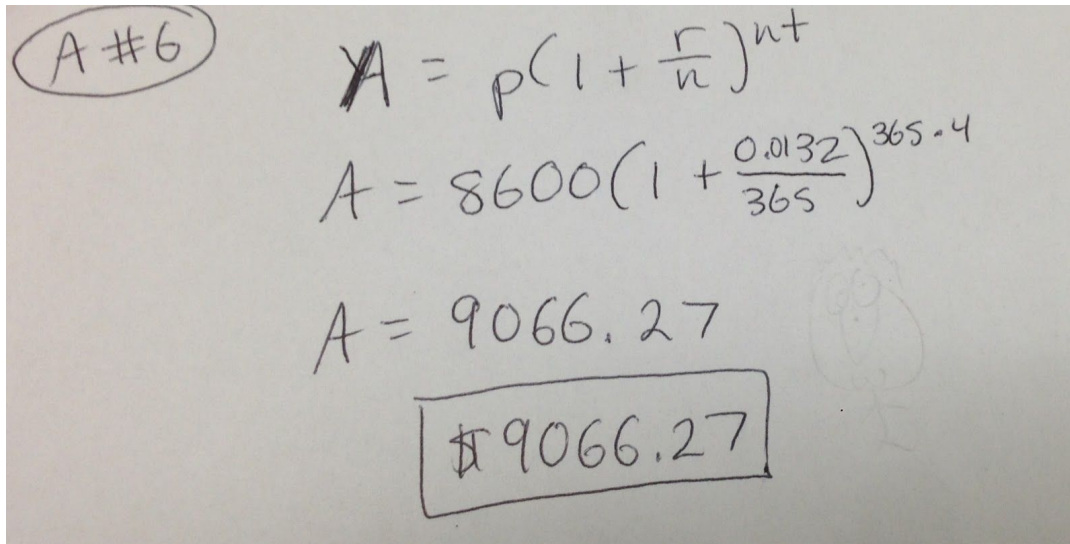 A #6
A = p(1 + r/n)^nt
A = 8600(1 + 0.0132/365)^365·4
A = 9066.27
$9066.27